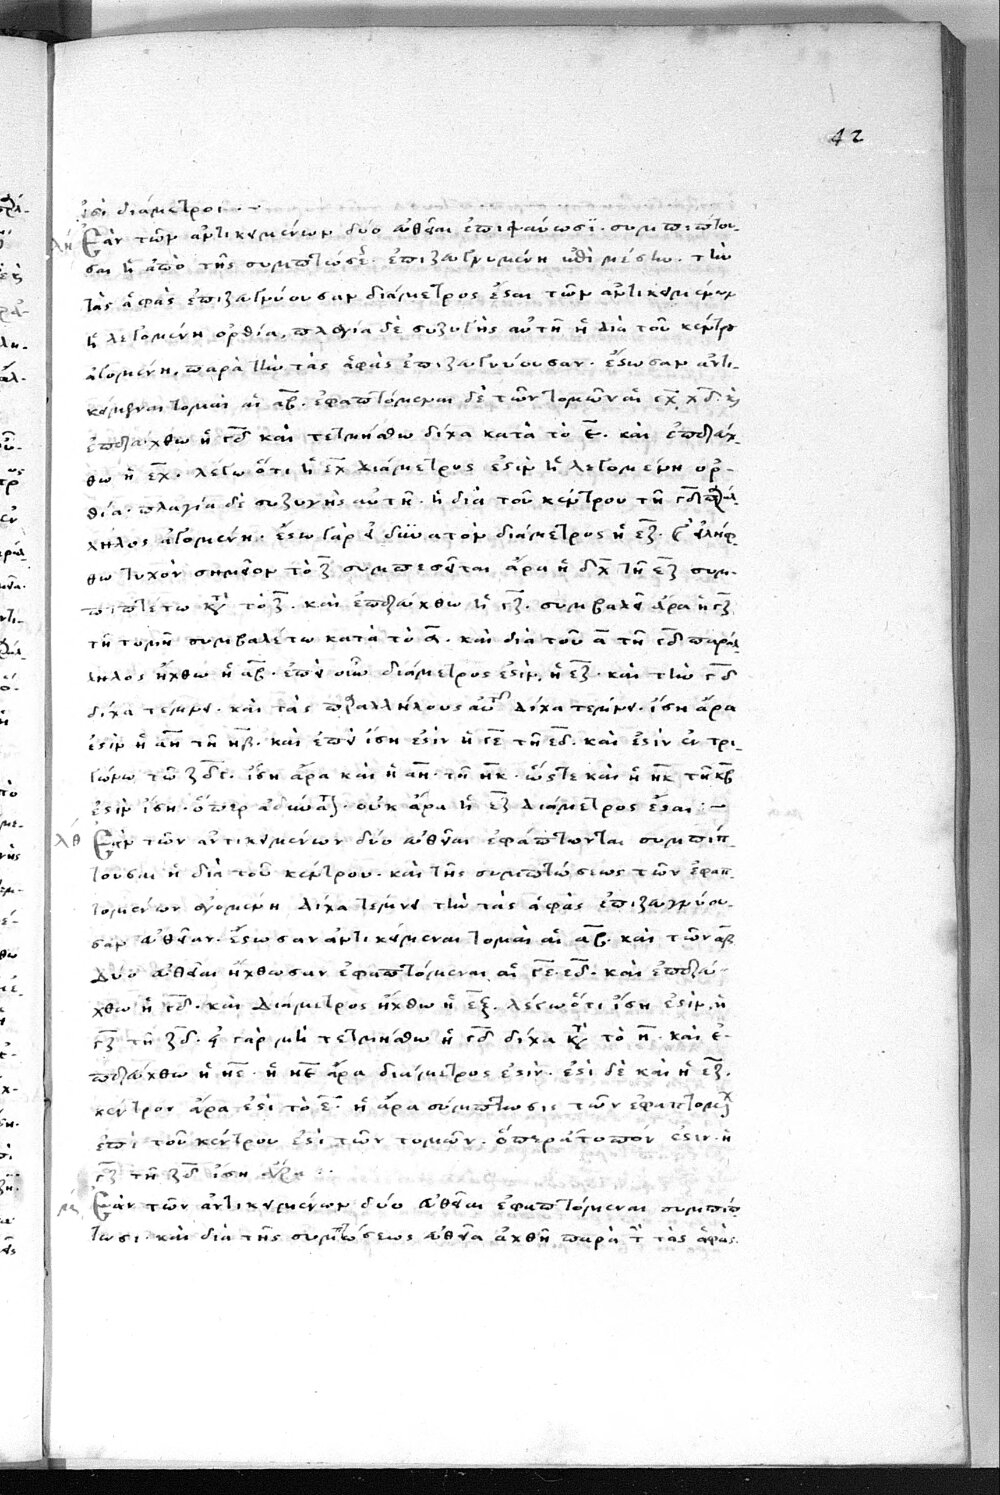 42
ἐστὶ διάμετρος
λη Ἐὰν τῶν ἀντικειμένων δύο εὐθεῖαι ἐπιψαύωσι συμπίπτου-
σαι ἡ ἀπὸ τῆς συμπτώσεως ἐπιζευγνυμένη ἐπὶ μέσην τὴν
τὰς ἁφὰς ἐπιζευγνύουσαν διάμετρος ἔσται τῶν ἀντικειμένων
ἡ λεγομένη ὀρθία, πλαγία δὲ συζυγὴς αὐτῇ ἡ διὰ τοῦ κέντρου
ἀγομένη, παρὰ τὴν τὰς ἁφὰς ἐπιζευγνύουσαν. ἔστωσαν ἀντι-
κείμεναι τομαὶ αἱ αβ. ἐφαπτόμεναι δὲ τῶν τομῶν αἱ γχ χδ. καὶ
ἐπεζεύχθω ἡ γδ καὶ τετμήσθω δίχα κατὰ τὸ ε. καὶ ἐπεζεύχ-
θω ἡ εχ. λέγω ὅτι ἡ εχ διάμετρος ἐστὶν ἡ λεγομένη ὀρ-
θία. πλαγία δὲ συζυγὴς αὐτῇ. ἡ διὰ τοῦ κέντρου τῇ γδ παράλ-
ληλος ἀγομένη. ἔστω γὰρ εἰ δυνατὸν διάμετρος ἡ εζ. καὶ εἰλήφ-
θω τυχὸν σημεῖον τὸ ζ συμπεσεῖται ἄρα ἡ δχ τῇ εζ συμ-
πιπτέτω κατὰ τὸ ζ. καὶ ἐπεζεύχθω ἡ γζ. συμβαλεῖ ἄρα ἡ γζ
τῇ τομῇ συμβαλέτω κατὰ τὸ α. καὶ διὰ τοῦ α τῇ γδ παράλ-
ληλος ἤχθω ἡ αβ. ἐπεὶ οὖν διάμετρος ἐστὶν, ἡ εζ. καὶ τὴν γδ
δίχα τέμνει. καὶ τὰς παραλλήλους αὐτῇ δίχα τέμνει. ἴση ἄρα
ἐστὶν ἡ αη τῇ ηβ. καὶ ἐπεὶ ἴση ἐστὶν ἡ γε τῇ εδ. καὶ ἐστὶν ἐν τρι-
γώνω τῶ ζδγ. ἴση ἄρα καὶ ἡ αη. τῇ ηκ. ὥστε καὶ ἡ ηκ τῇ ηβ
ἐστὶν ἴση. ὅπερ ἀδύνατον. οὐκ ἄρα ἡ εζ διάμετρος ἔσται :—
λθ Ἐὰν τῶν ἀντικειμένων δύο εὐθεῖαι ἐφάπτωνται συμπίπ-
τουσαι ἡ διὰ τοῦ κέντρου. καὶ τῆς συμπτώσεως τῶν ἐφαπ-
τομένων ἀγομένη δίχα τέμνει τὴν τὰς ἁφὰς ἐπιζευγνύου-
σαν εὐθεῖαν. ἔστωσαν ἀντικείμεναι τομαὶ αἱ αβ. καὶ τῶν αβ
δύο εὐθεῖαι ἤχθωσαν ἐφαπτόμεναι αἱ γε. εδ. καὶ ἐπεζεύ-
χθω ἡ γδ. καὶ διάμετρος ἤχθω ἡ εζ. λέγω ὅτι ἴση ἐστὶν. ἡ
γζ τῇ ζδ. εἰ γὰρ μὴ τετμήσθω ἡ γδ δίχα κατὰ τὸ η. καὶ ἐ-
πεζεύχθω ἡ ηε. ἡ ηε ἄρα διάμετρος ἐστὶν. ἐστὶ δὲ καὶ ἡ εζ.
κέντρον ἄρα ἐστὶ τὸ ε. ἡ ἄρα σύμπτωσις τῶν ἐφαπτομένων
ἐπὶ τοῦ κέντρου ἐστὶ τῶν τομῶν. ὅπερ ἄτοπον ἐστὶν. ἡ
γζ τῇ ζδ ἴση ἄρα :
μ Ἐὰν τῶν ἀντικειμένων δύο εὐθεῖαι ἐφαπτόμεναι συμπίπ
τωσι. καὶ διὰ τῆς συμπτώσεως εὐθεῖα ἀχθῇ παρὰ τὴν τὰς ἁφὰς